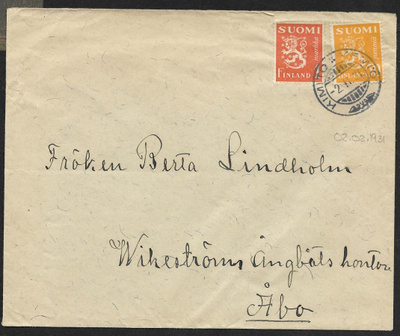 SUOMI SUOMI
FINLAND FINLAND
KIMITO
02.02.1931
Fröken Berta Lindholm
Wikeströms Ångbåts kontor
Åbo